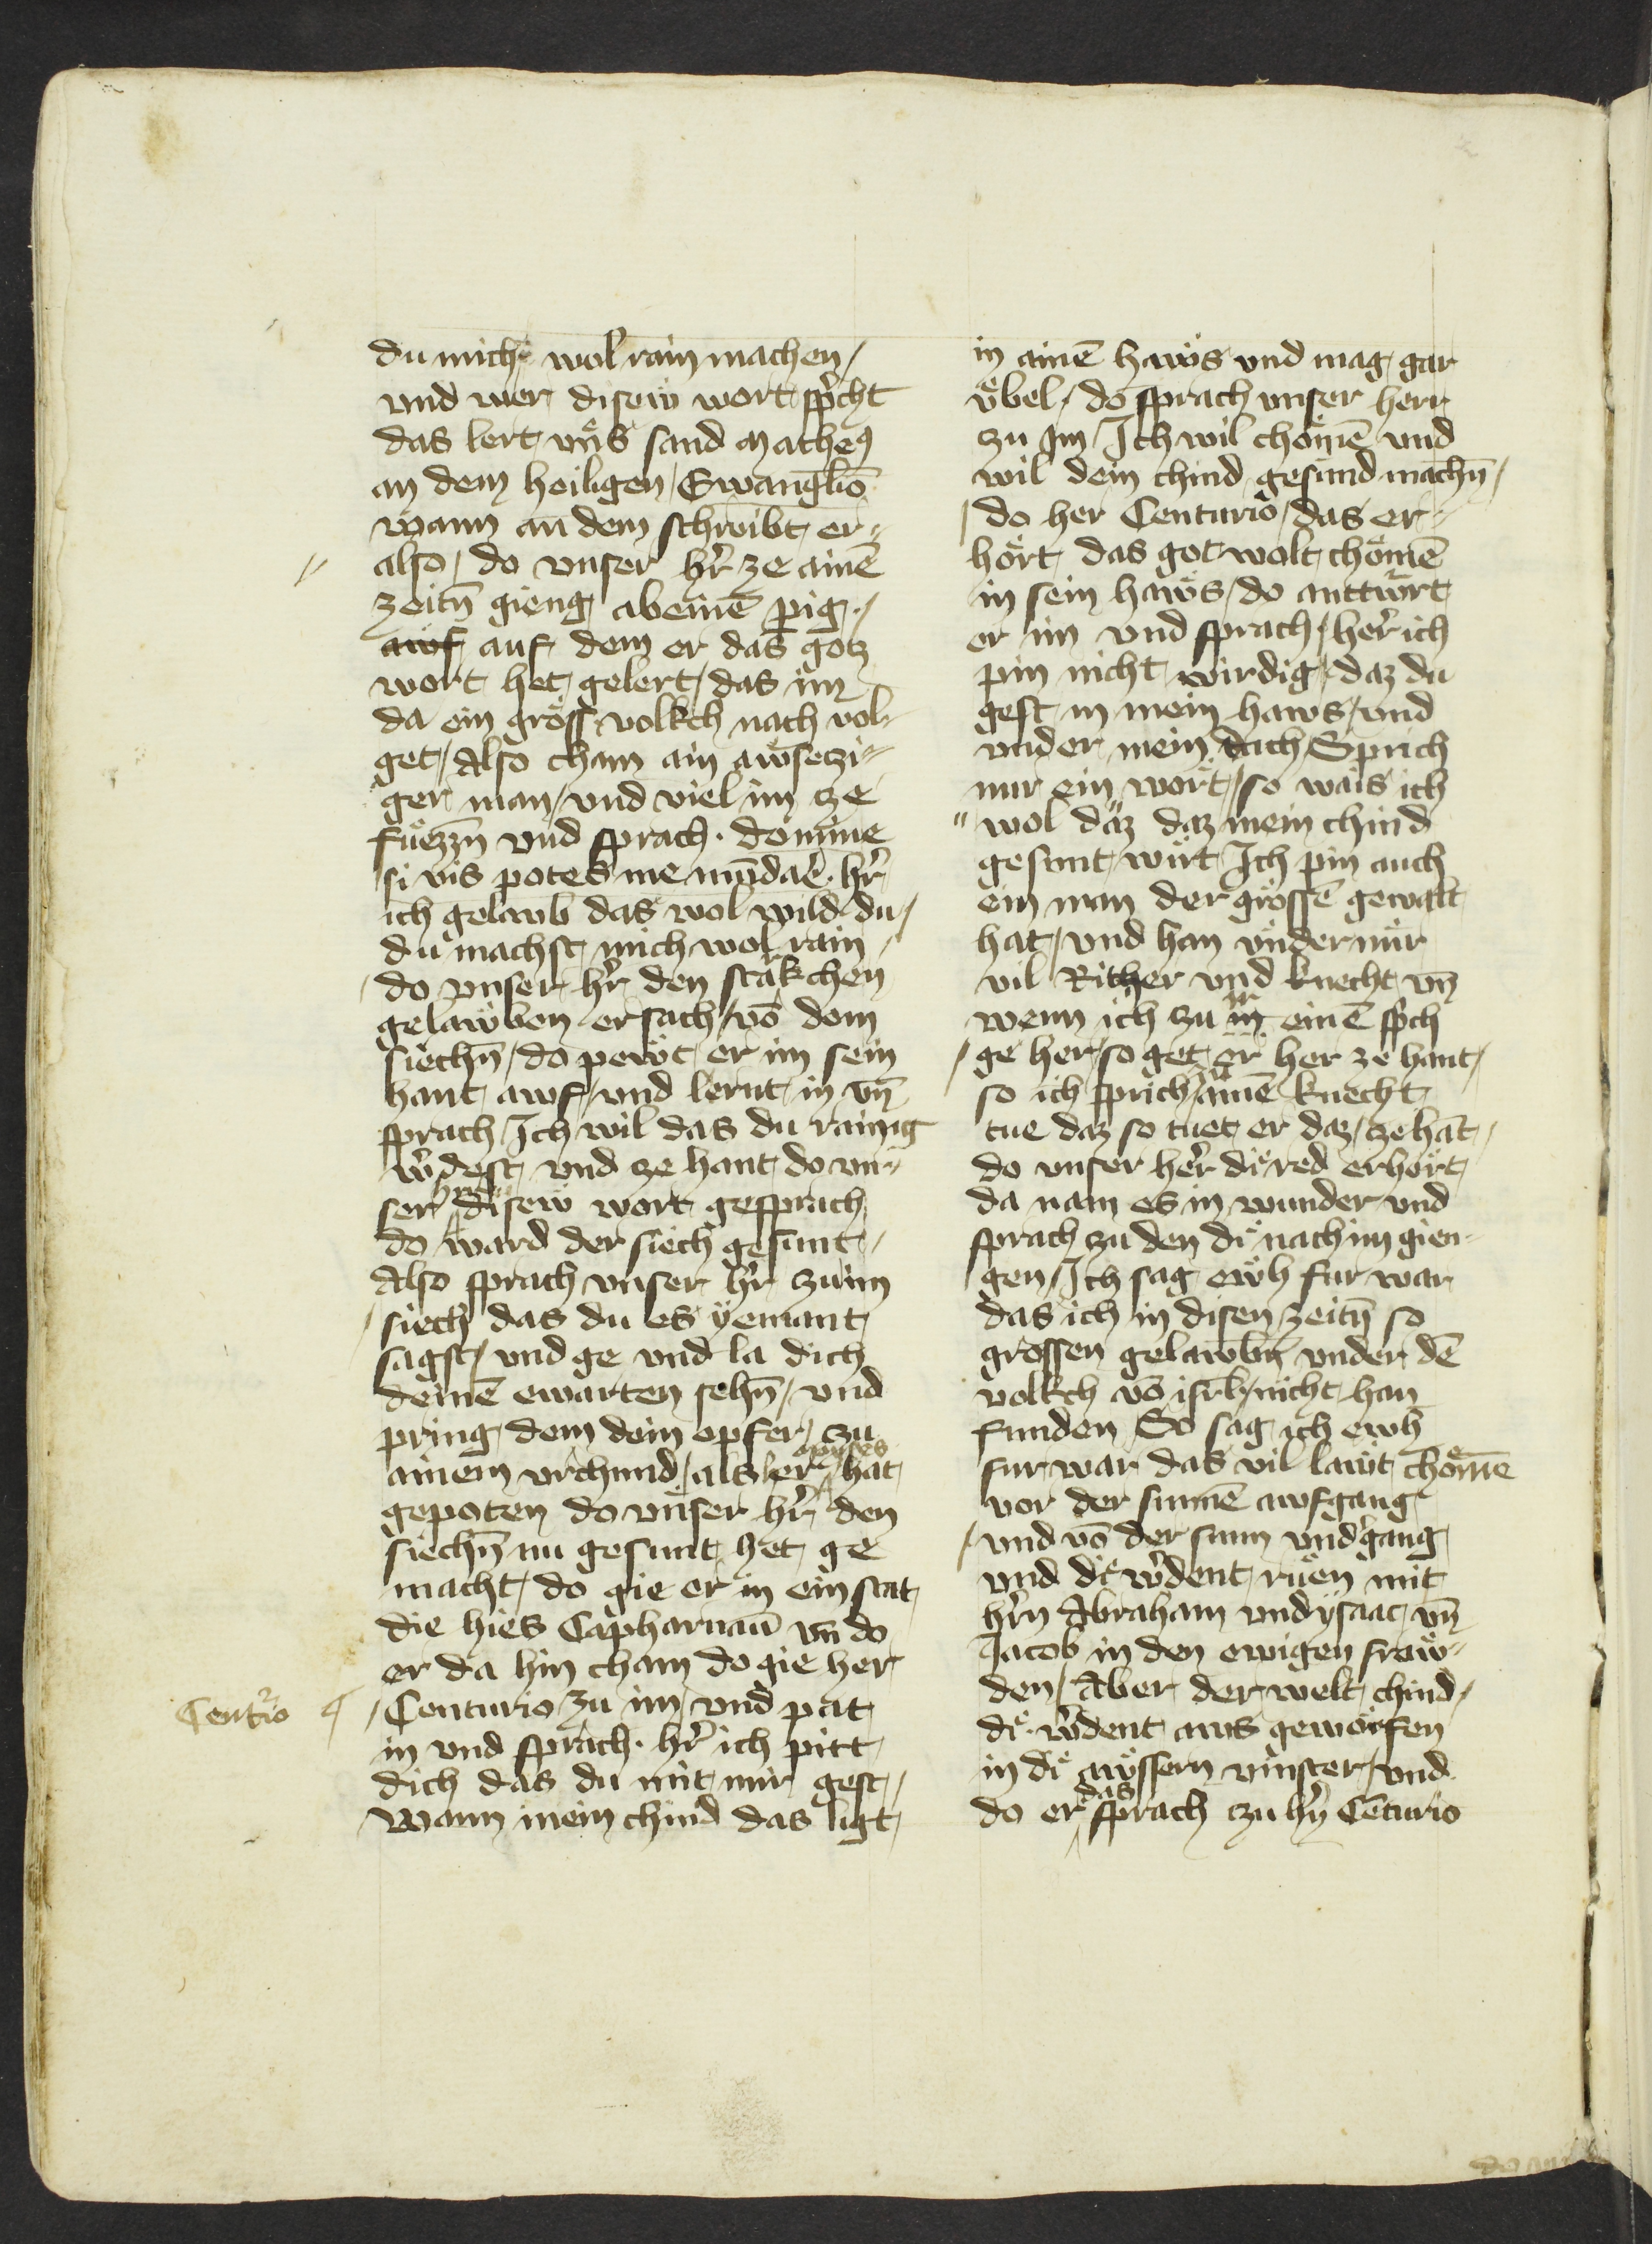 du mich wol rain machen /
vnd wer disew wort spͥcht
das lert vns sand Matheꝰ
an dem heiligen Ewangl̄io
wann an dem schreibt er
also / do vnser hr̄ ze ainē
zeitn̄ gieng abeinē p̱ig /
awf auf dem er das gotz
wort het gelert / das im
da ein gröss volkch nach vol
get / Also cham ain awsetzi
ger man / vnd viel im ze
fuͤezzn̄ vnd sprach · domine
si vis potes me mūdaē · hr̄
ich gelaub das wol wild du /
du machst mich wol rain /
do vnser hr̄ den starkchen
gelawben ersach / vō dem
siechn̄ / do pewt er im sein
hant awf / vnd lernt in vn̄
sprach / Ich wil das du rainig
wͤdest vnd ze hant do vn
ser hr̄ disew wort gesprach
do ward der siech gesunt /
Also sprach vnser hr̄ zu im
siech das du es yemant
sagst / vnd ge vnd la dich
deinē ewarten sehn̄ / vnd
pring dem dein opfer zu
ainem vrchund / als her Moyses hat
gepoten do vnser hr̄ den
siechn̄ nu gesunt het ge
macht / do gie er in ein stat
die hies Capharnaū vn̄ do
er da hin cham do gie her
Centͥo
Centurio zu im / vnd pat
in vnd sprach · hr̄ ich pitt
dich das du mit mir gest /
Wann mein chind das ligt
in ainē hawͤs vnd mag gar
vͤbel / do sprach vnser herr
zu Im / Ich wil choͤmē vnd
wil dein chind gesund machn̄ /
do her Centurio / das er
hoͤrt das got wolt choͤmē
in sein hawͤs / do antwͦrt
er im vnd sprach / her̄ ich
pin nicht wirdig / daz du
gest in mein haws / vnd
vnder mein dach / Sprich
nur ein wort / so wais ich
wol daz daz mein chind
gesunt wiͤrt Ich pin auch
ein man der grossē gewalt
hat / vnd han vnder mir
vil Ritther vnd knecht vn̄
wenn ich zu ir einē spͥch
ge her / so get er her ze hant /
so ich sprich zu ainē knecht
tue daz so tuet er daz / ze hāt /
do vnser her̄ diͤ red erhort
da nam es in wunder vnd
sprach zu den diͤ nach im gien
gen / Ich sag ewh fur war
das ich in disen zeitn̄ so
grossen gelawbn̄ vnder dē
volkch vō isrl̄ / nicht han
funden / So sag ich ewh
fur war das vil lawͤt choͤmē
vor der sunnē awfgang
vnd vō der sunn vndͤgang
vnd diͤ wͤdent ruͤen mit
hr̄n Abraham vnd ysaac vn̄
Jacob in den ewigen frewͤ
den / Aber der welt chind /
diͤ wͤdent aws geworfen
in diͤ awͤssern vinster / vnd
do er das sprach zu hr̄n Cēturio